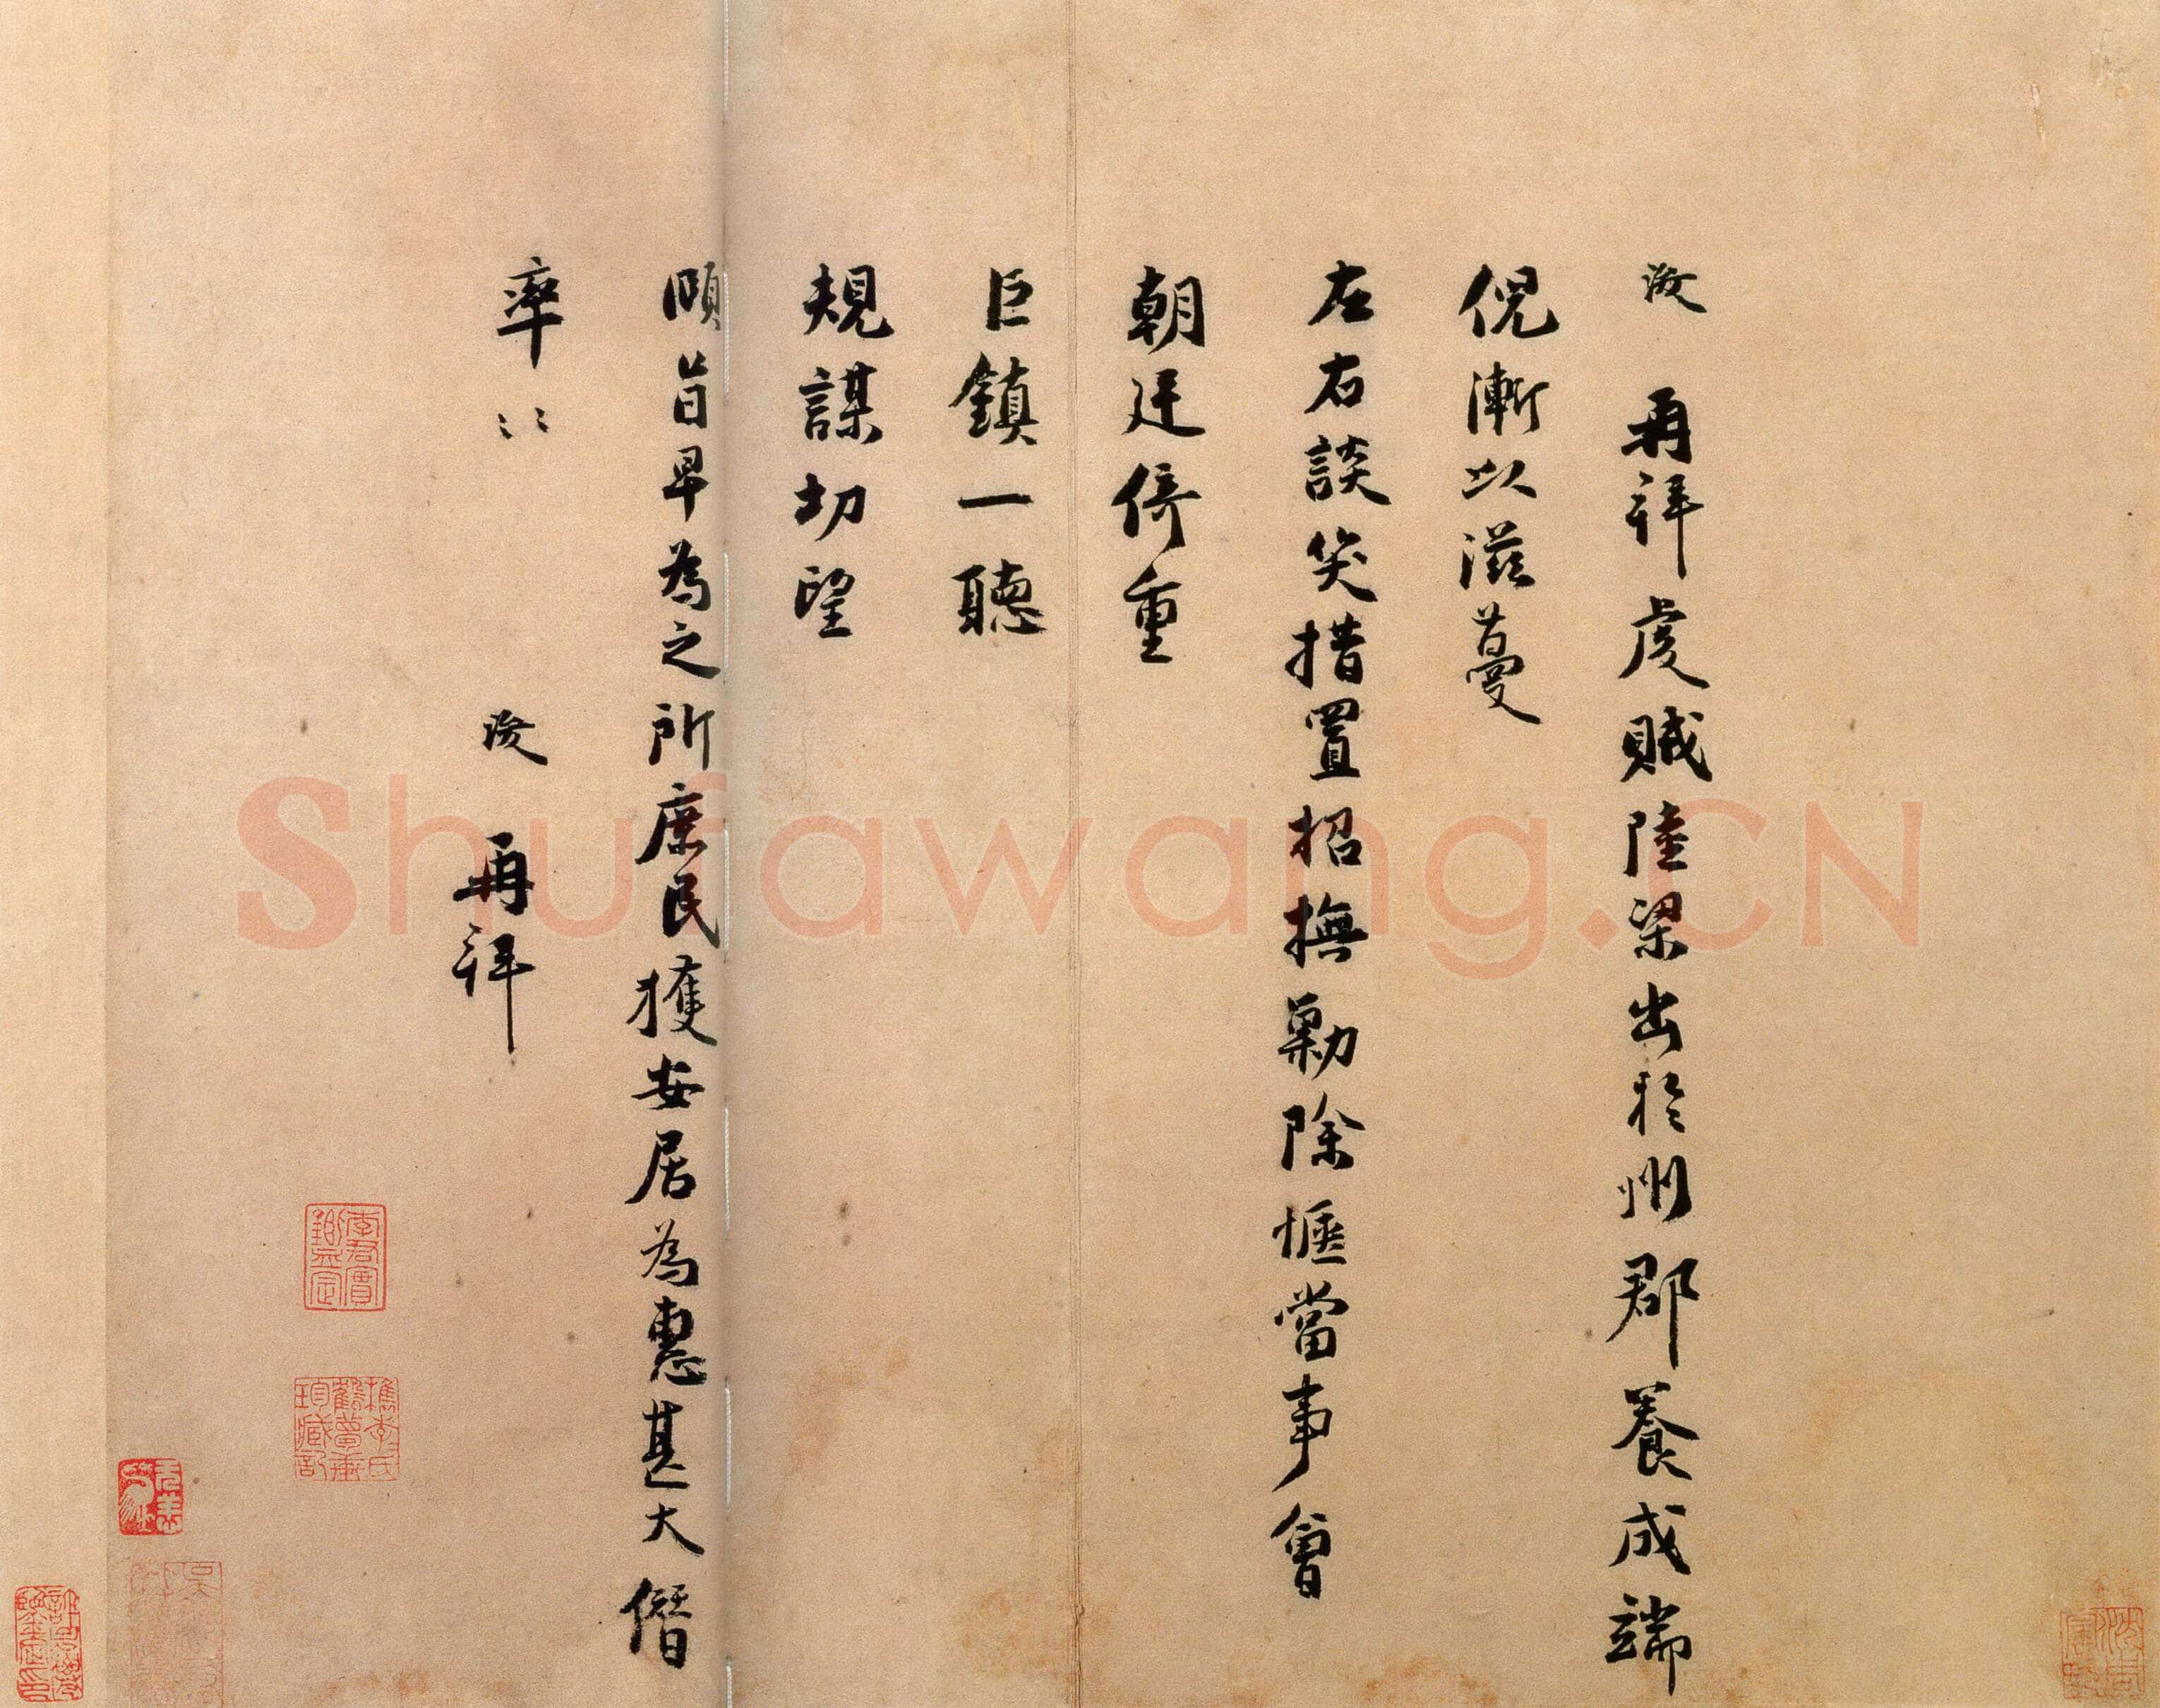 浚 再拜虔賊陸梁出於州郡養成端
倪漸以滋蔓
左右談笑措置招撫勦除愜當事會
朝廷倚重
巨鎮一聽
規謀切望
頤旨早為之所庶民獲安居為惠甚大僭
率〻 浚 再拜
李君實鑒定
檇李李氏鶴夢軒珍藏記
Shufawang.CN